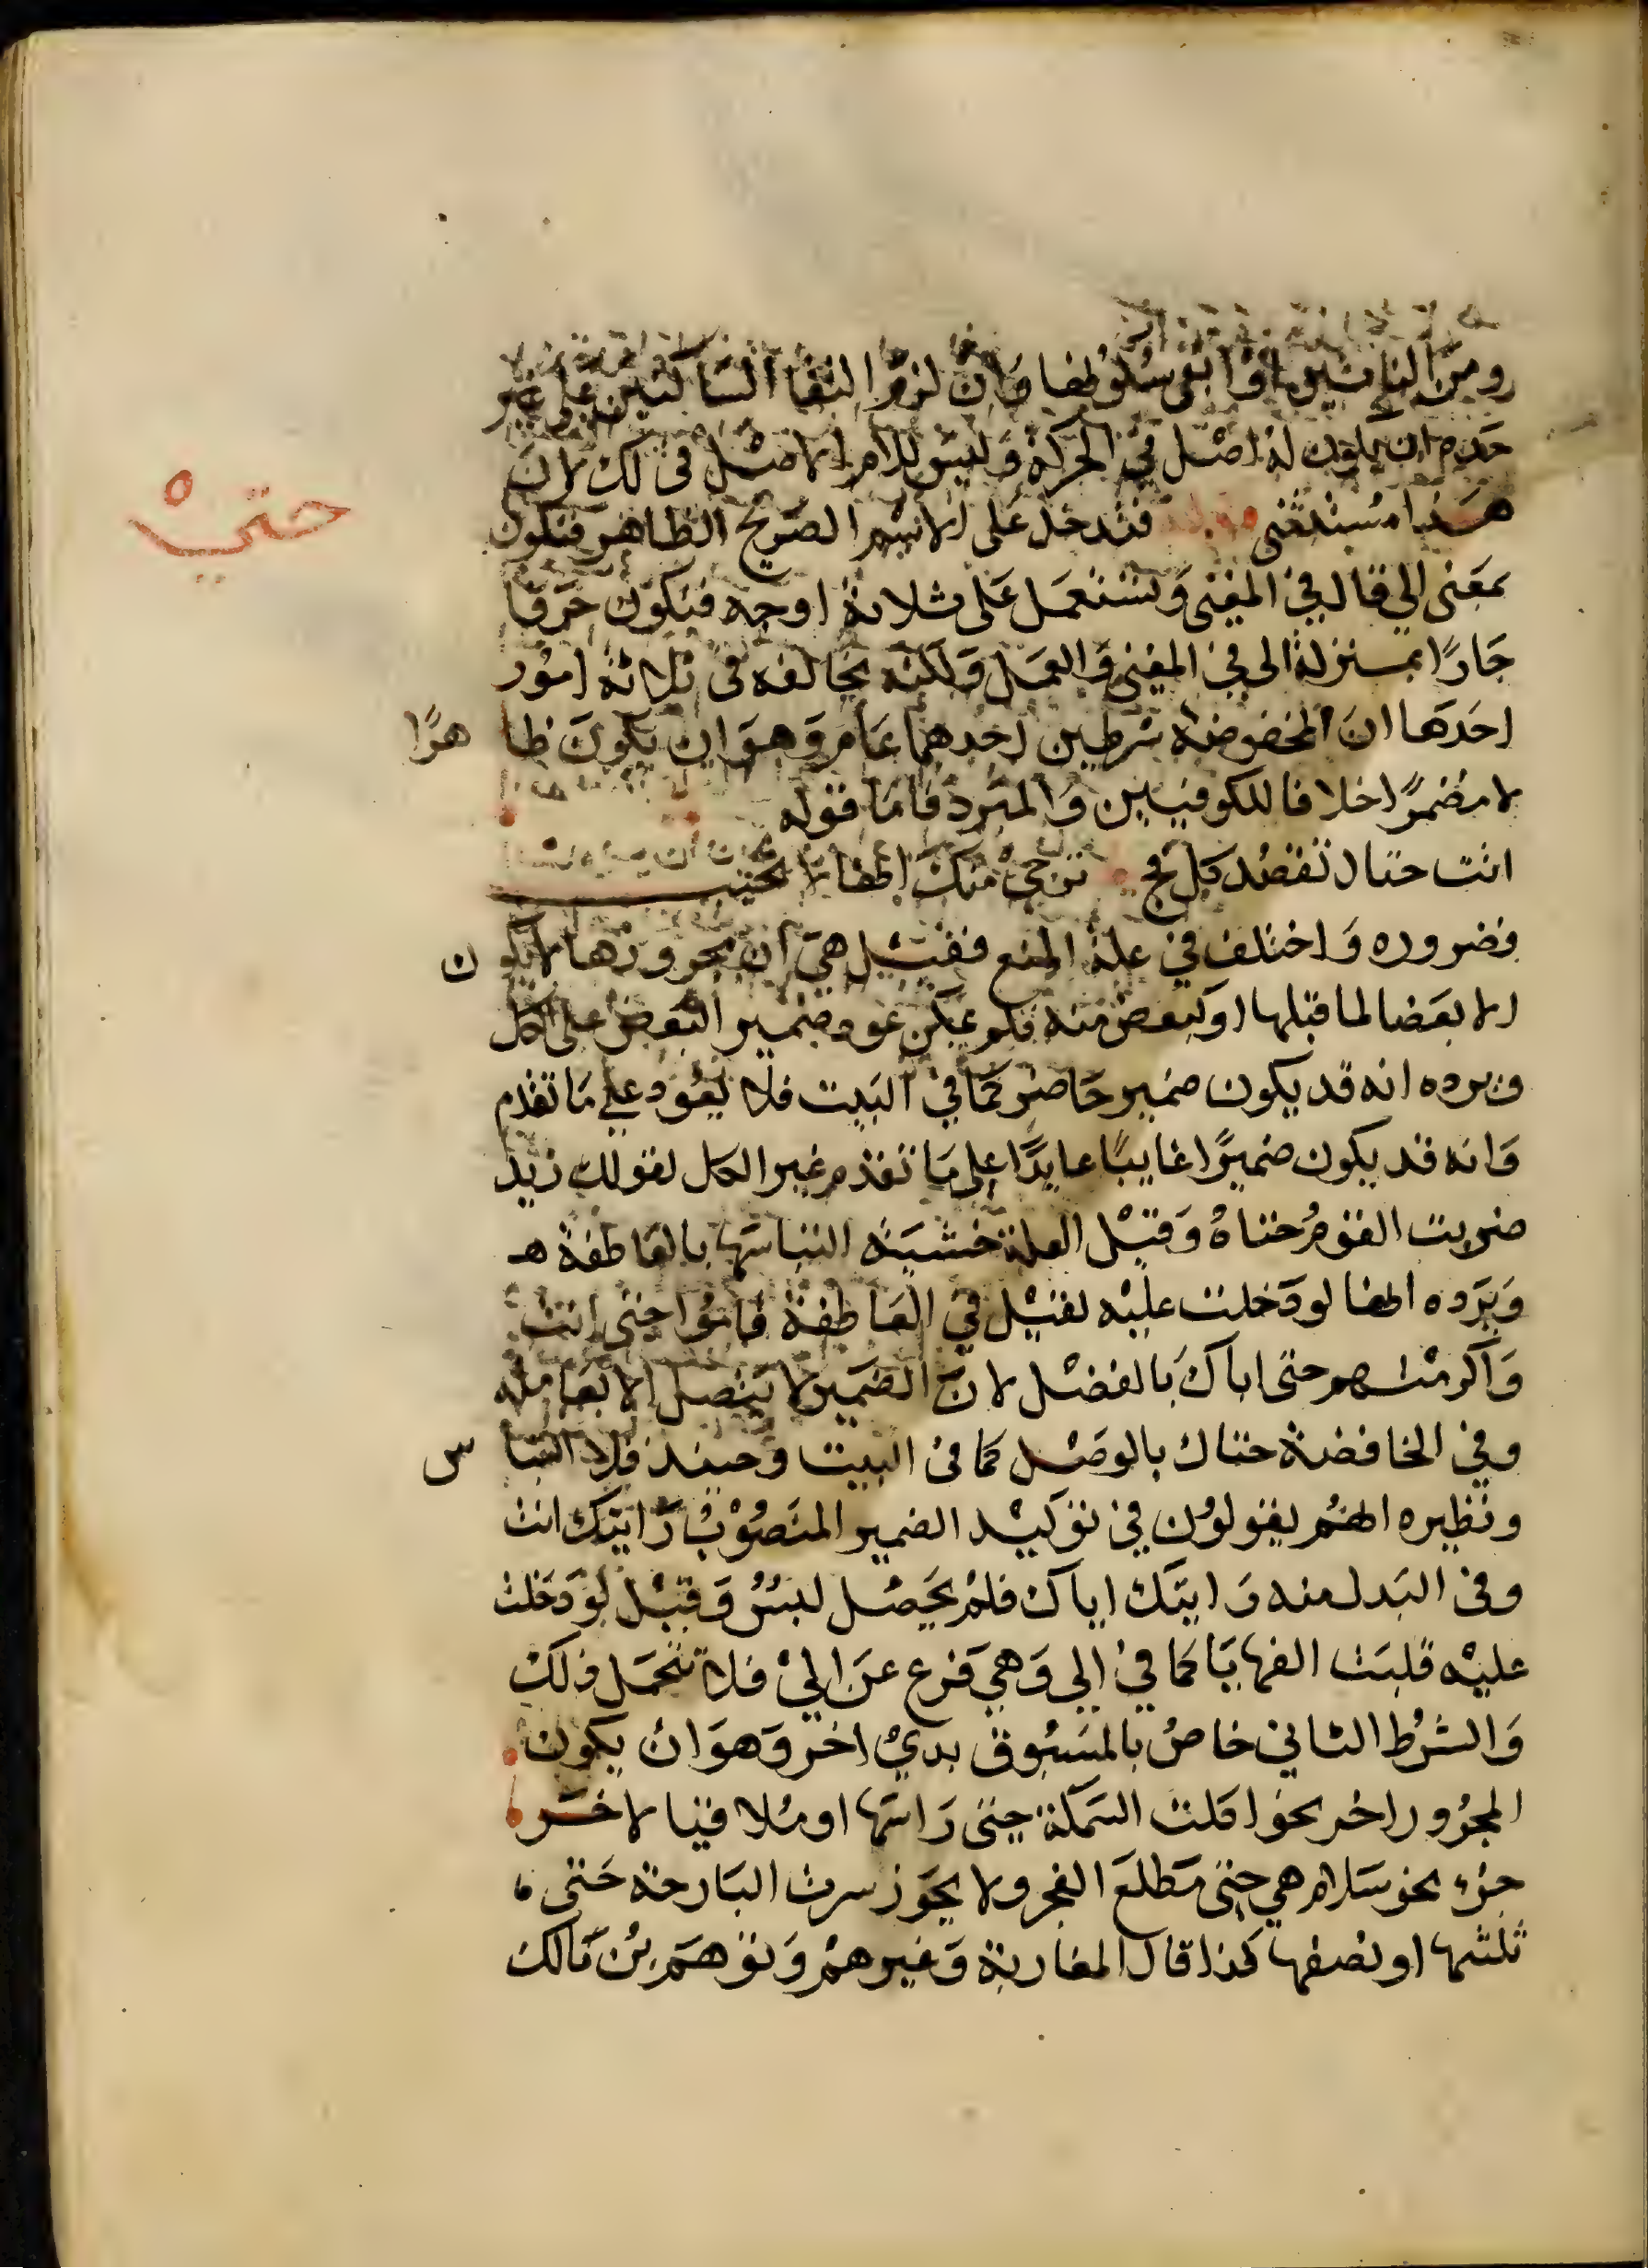 حتي
ومن الناس ابقى سكونها وان لزم التقا الساكنين على غير
حده ان يكون له اصل في الحركة وليس للام الاصل في ذلك لان
هذا مستدعى فتدخل على الاسم الصريح الظاهر فتكون
بمعنى الي قال في المغنى وتستعمل على ثلاثة اوجه فيكون حرفا
جارًا بمنزلة الى في المعنى والعمل ولكنه يخالفه في ثلاثة امور
احدها ان لمخفوضه شرطين احدهما عام وهو ان يكون ظاهرًا
لا مضمرًا خلافا للكوفيين والمبرد فاما قوله
اتت حتاك تقصد كل فج ترجي منك انها لا تخيب
فضروره واختلف في علة المنع فقيل هي ان مجرورها لا يكون
الا بعضا لما قبلها او كبعض منه فلم يمكن عود ضمير البعض على الكل
ويرده انه قد يكون ضمير حاضر كما في البيت فلا يعود على ما تقدم
وانه قد يكون ضميرًا غايبًا عايدًا على ما تقدم غير الكل لقولك زيد
ضربت القوم حتاهُ وقيل العلة خشية التباسها بالعاطفة هـ
ويرده انها لو دخلت عليه لقيل في العاطفة قاموا حتى انت
واكرمتهم حتى اياك بالفصل لان الضمير لا يتصل الا بعامله
وفي الخافضة حتاك بالوصل كما في البيت وحينئذ فلا التباس
ونظيره انهم يقولون في توكيد الضمير المنصوب رايتك انت
وفي البدل منه رايتك اياك فلم يحصل لبس وقيل لو دخلت
عليه قلبت الفها يا كما في الي وهي فرع عن الي فلا تحمل ذلك
والشرط الثاني خاص بالمسبوق بذي اخر وهو ان يكون
المجرور اخر نحو اكلت السمكة حتى راسها او ملاقيا لاخر
جزء نحو سلام هي حتى مطلع الفجر ولا يجوز سرت البارحة حتى
ثلثها او نصفها كذا قال المغاربة وغيرهم وتوهم بن مالك